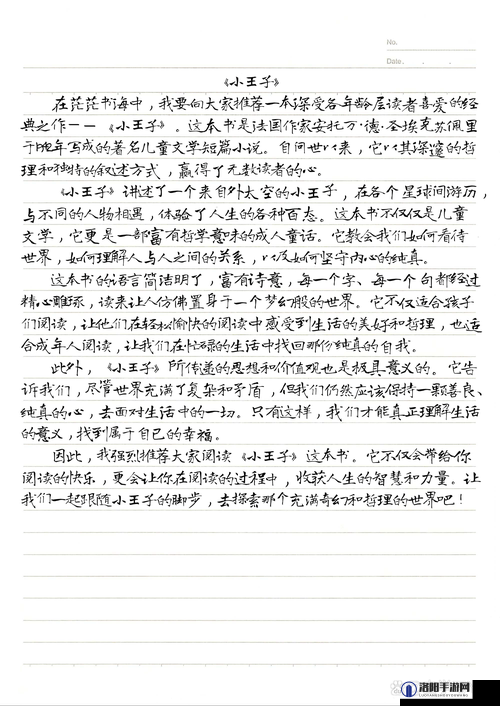 No.
Date. . .
《小王子》
在茫茫书海中，我要向大家推荐一本深受各年龄层读者喜爱的经
典之作——《小王子》。这本书是法国作家安托万·德·圣埃克苏佩里
于晚年写成的著名儿童文学短篇小说。自问世以来，它以其深邃的哲
理和独特的叙述方式，赢得了无数读者的心。
《小王子》讲述了一个来自外太空的小王子，在各个星球间游历，
与不同的人物相遇，体验了人生的各种百态。这本书不仅仅是儿童
文学，它更是一部富有哲学意味的成人童话。它教会我们如何看待
世界，如何理解人与人之间的关系，以及如何坚守内心的纯真。
这本书的语言简洁明了，富有诗意，每一个字、每一个句都经过
精心雕琢，读来让人仿佛置身于一个梦幻般的世界。它不仅适合孩子
们阅读，让他们在轻松愉快的阅读中感受到生活的美好和哲理，也适
合成年人阅读，让我们在忙碌的生活中找回那份纯真的自我。
此外，《小王子》所传递的思想和价值观也是极具意义的。它告
诉我们，尽管世界充满了复杂和矛盾，但我们仍然应该保持一颗善良、
纯真的心，去面对生活中的一切。只有这样，我们才能真正理解生活
的意义，找到属于自己的幸福。
因此，我强烈推荐大家阅读《小王子》这本书。它不仅会带给你
阅读的快乐，更会让你在阅读的过程中，收获人生的智慧和力量。让
我们一起跟随小王子的脚步，去探索那个充满奇幻和哲理的世界吧！
洛阳手游网